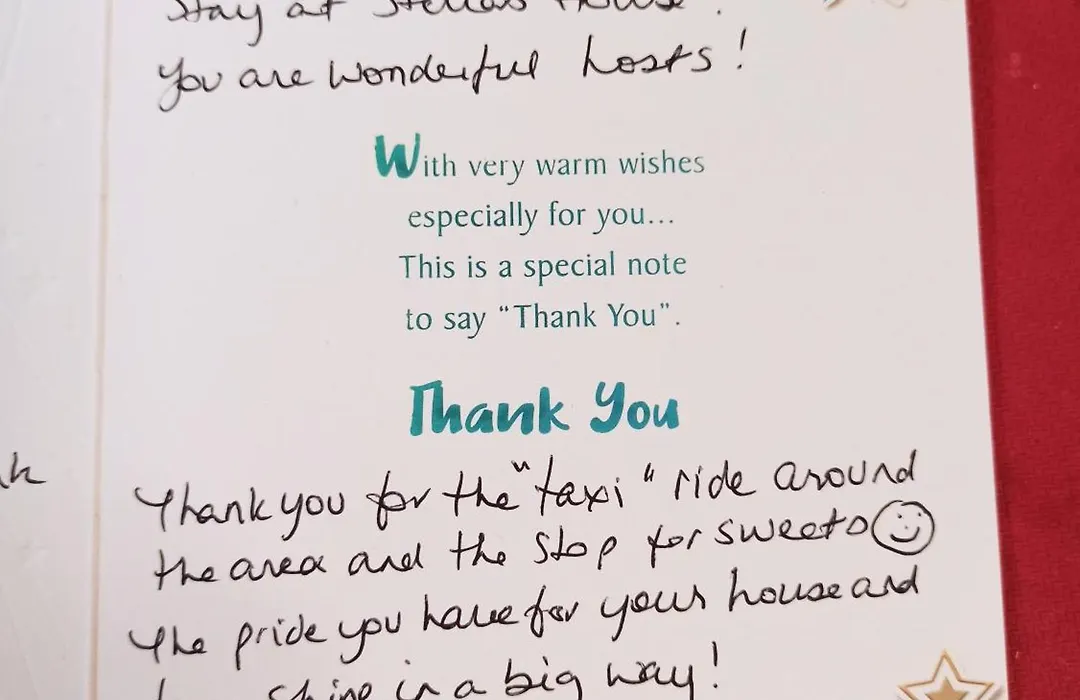 Stay at Stella's House!
You are wonderful hosts!
With very warm wishes
especially for you...
This is a special note
to say “Thank You”.
Thank You
Thank you for the "taxi" ride around
the area and the stop for sweets
The pride you have for your house and
shine in a big way!